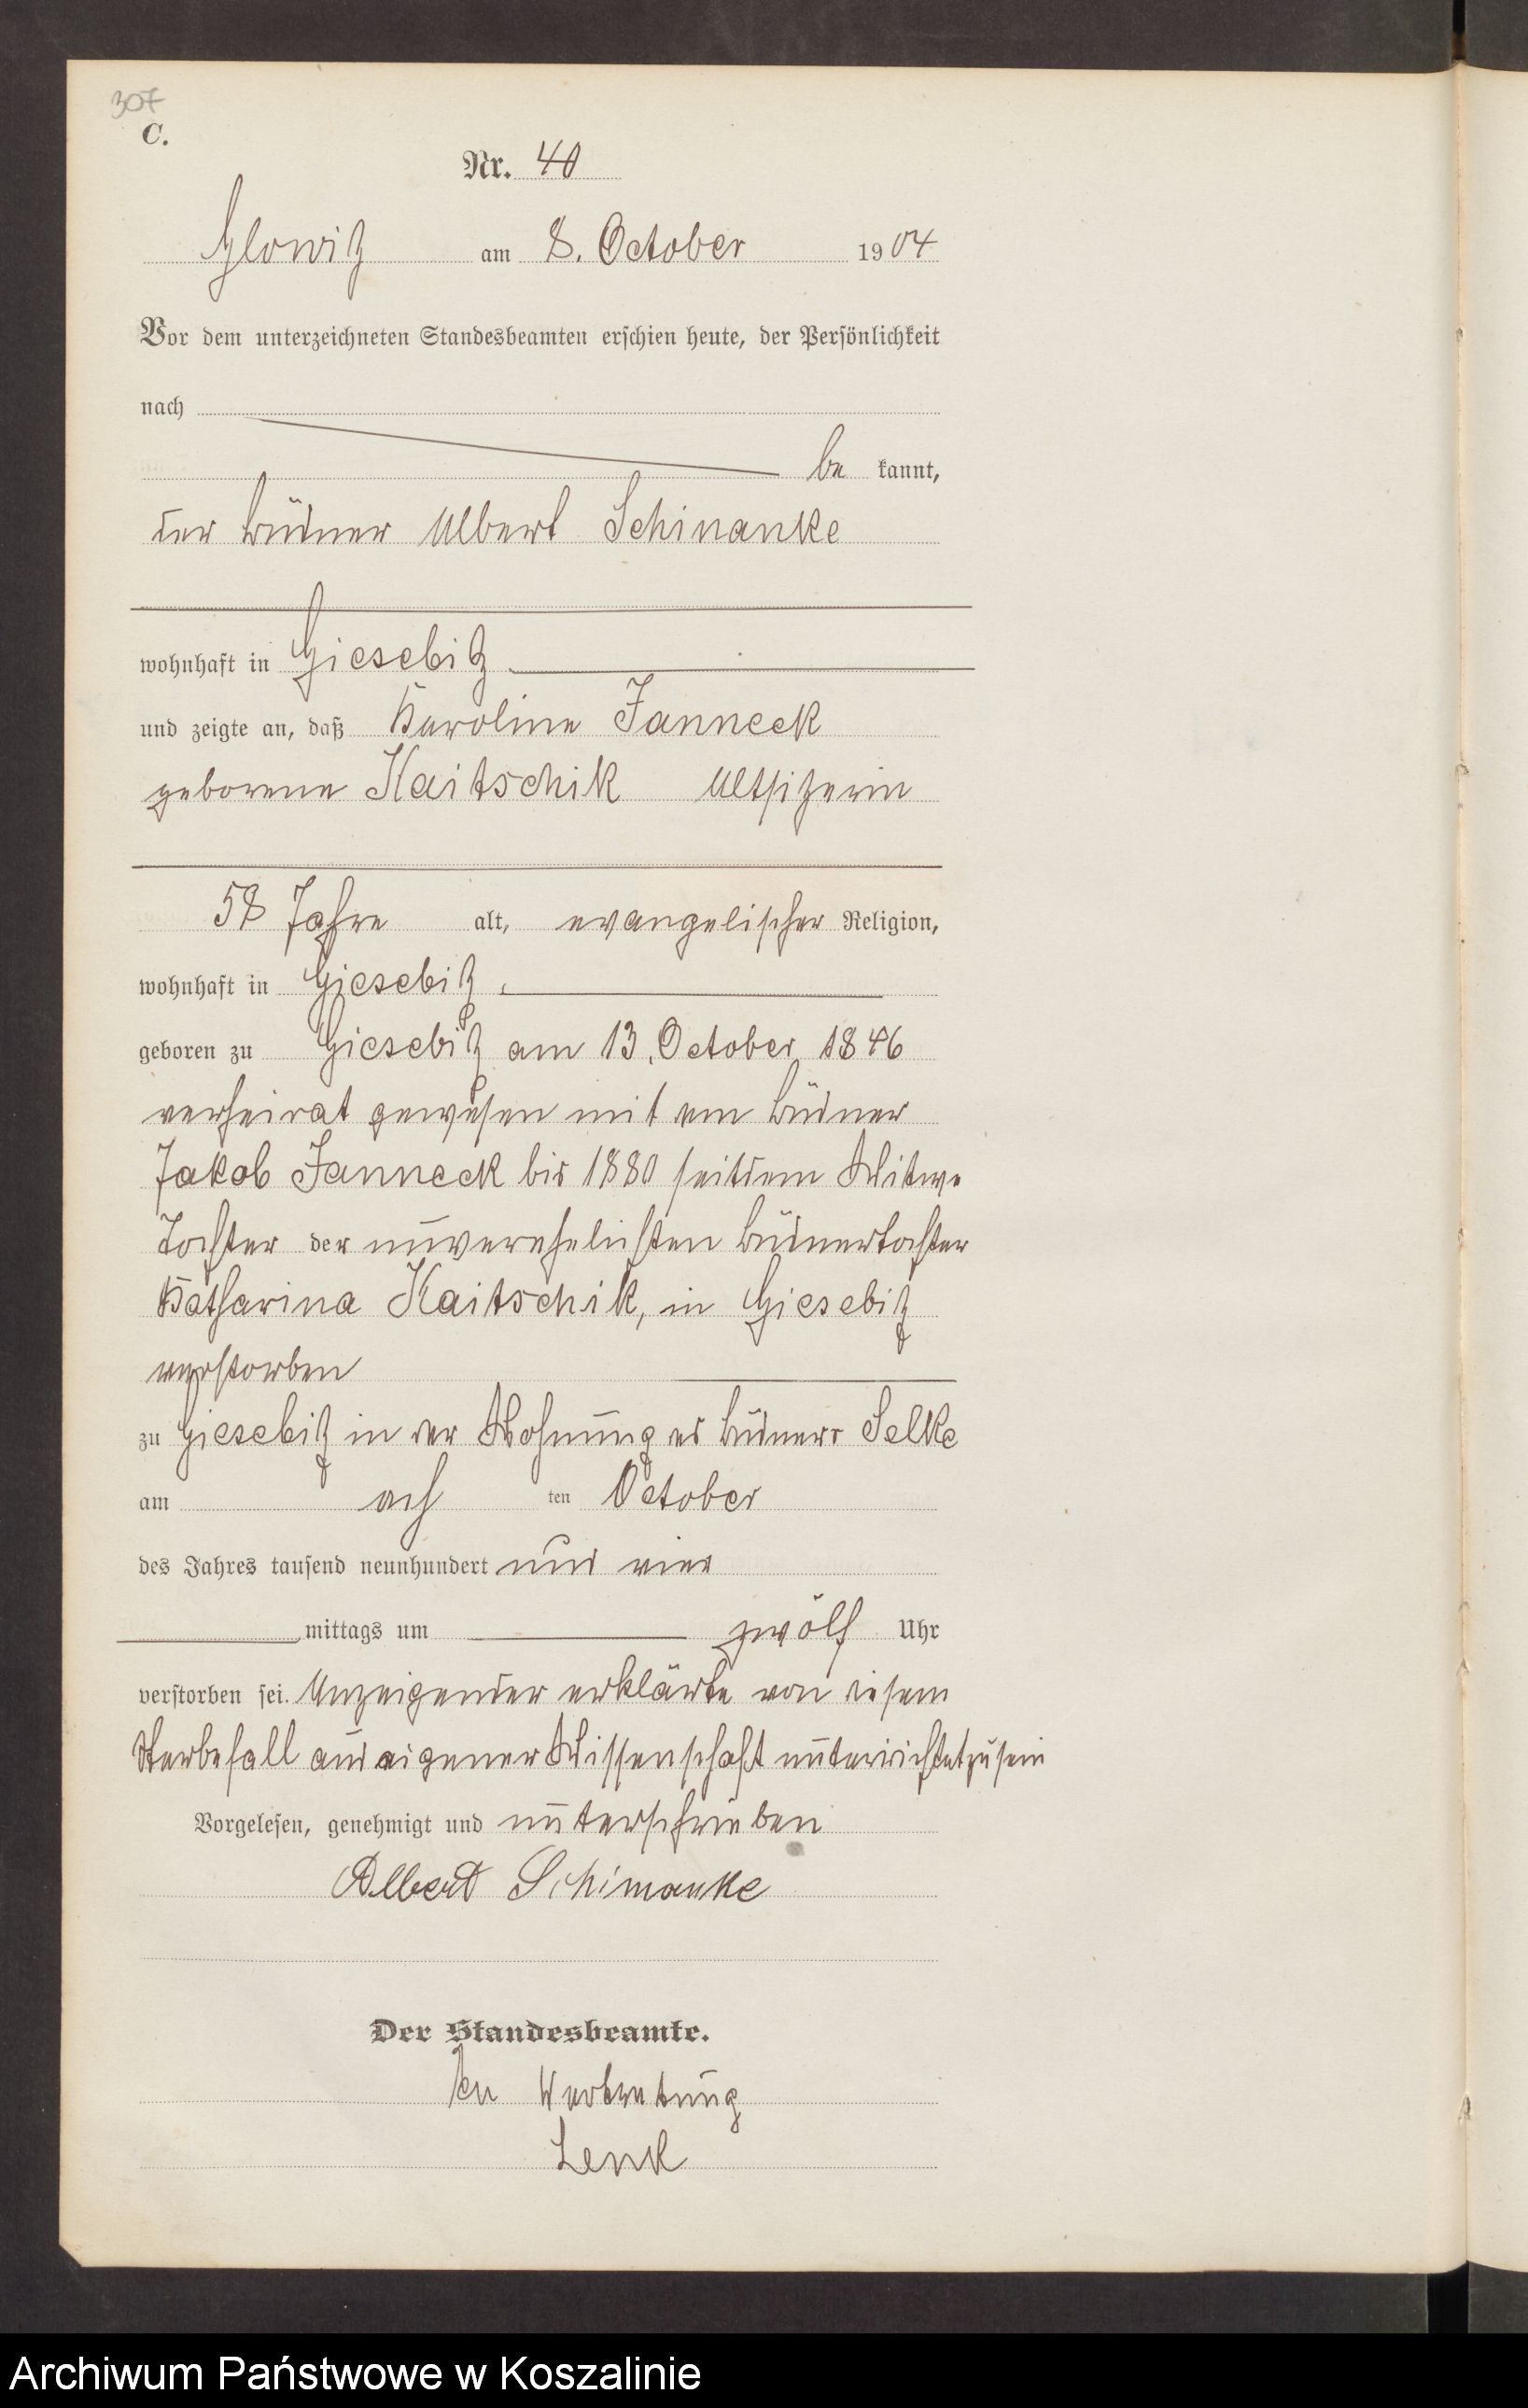 307
C.
Nr. 40
Glowitz am 8. October 1904
Vor dem unterzeichneten Standesbeamten erschien heute, der Persönlichkeit
nach
be kannt,
der Büdner Albert Schimanke
wohnhaft in Giesebitz
und zeigte an, daß Karoline Janneck
geborene Kaitschik Altsitzerin
58 Jahre alt, evangelischer Religion,
wohnhaft in Giesebitz,
geboren zu Giesebitz am 13. October 1846
verheirat gewesen mit dem Büdner
Jakob Janneck bis 1880 seitdem Witwe
Tochter der unverehelichten Büdnertochter
Katharina Kaitschik, in Giesebitz
verstorben
zu Giesebitz in der Wohnung des Büdners Selke
am ach ten October
des Jahres tausend neunhundert und vier
mittags um zwölf Uhr
verstorben sei. Anzeigender erklärte von diesem
Sterbefall aus eigener Wissenschaft unterrichtet zu sein
Vorgelesen, genehmigt und unterschrieben
Albert Schimanke
Der Standesbeamte.
In Vertretung
Lenk
Archiwum Państwowe w Koszalinie